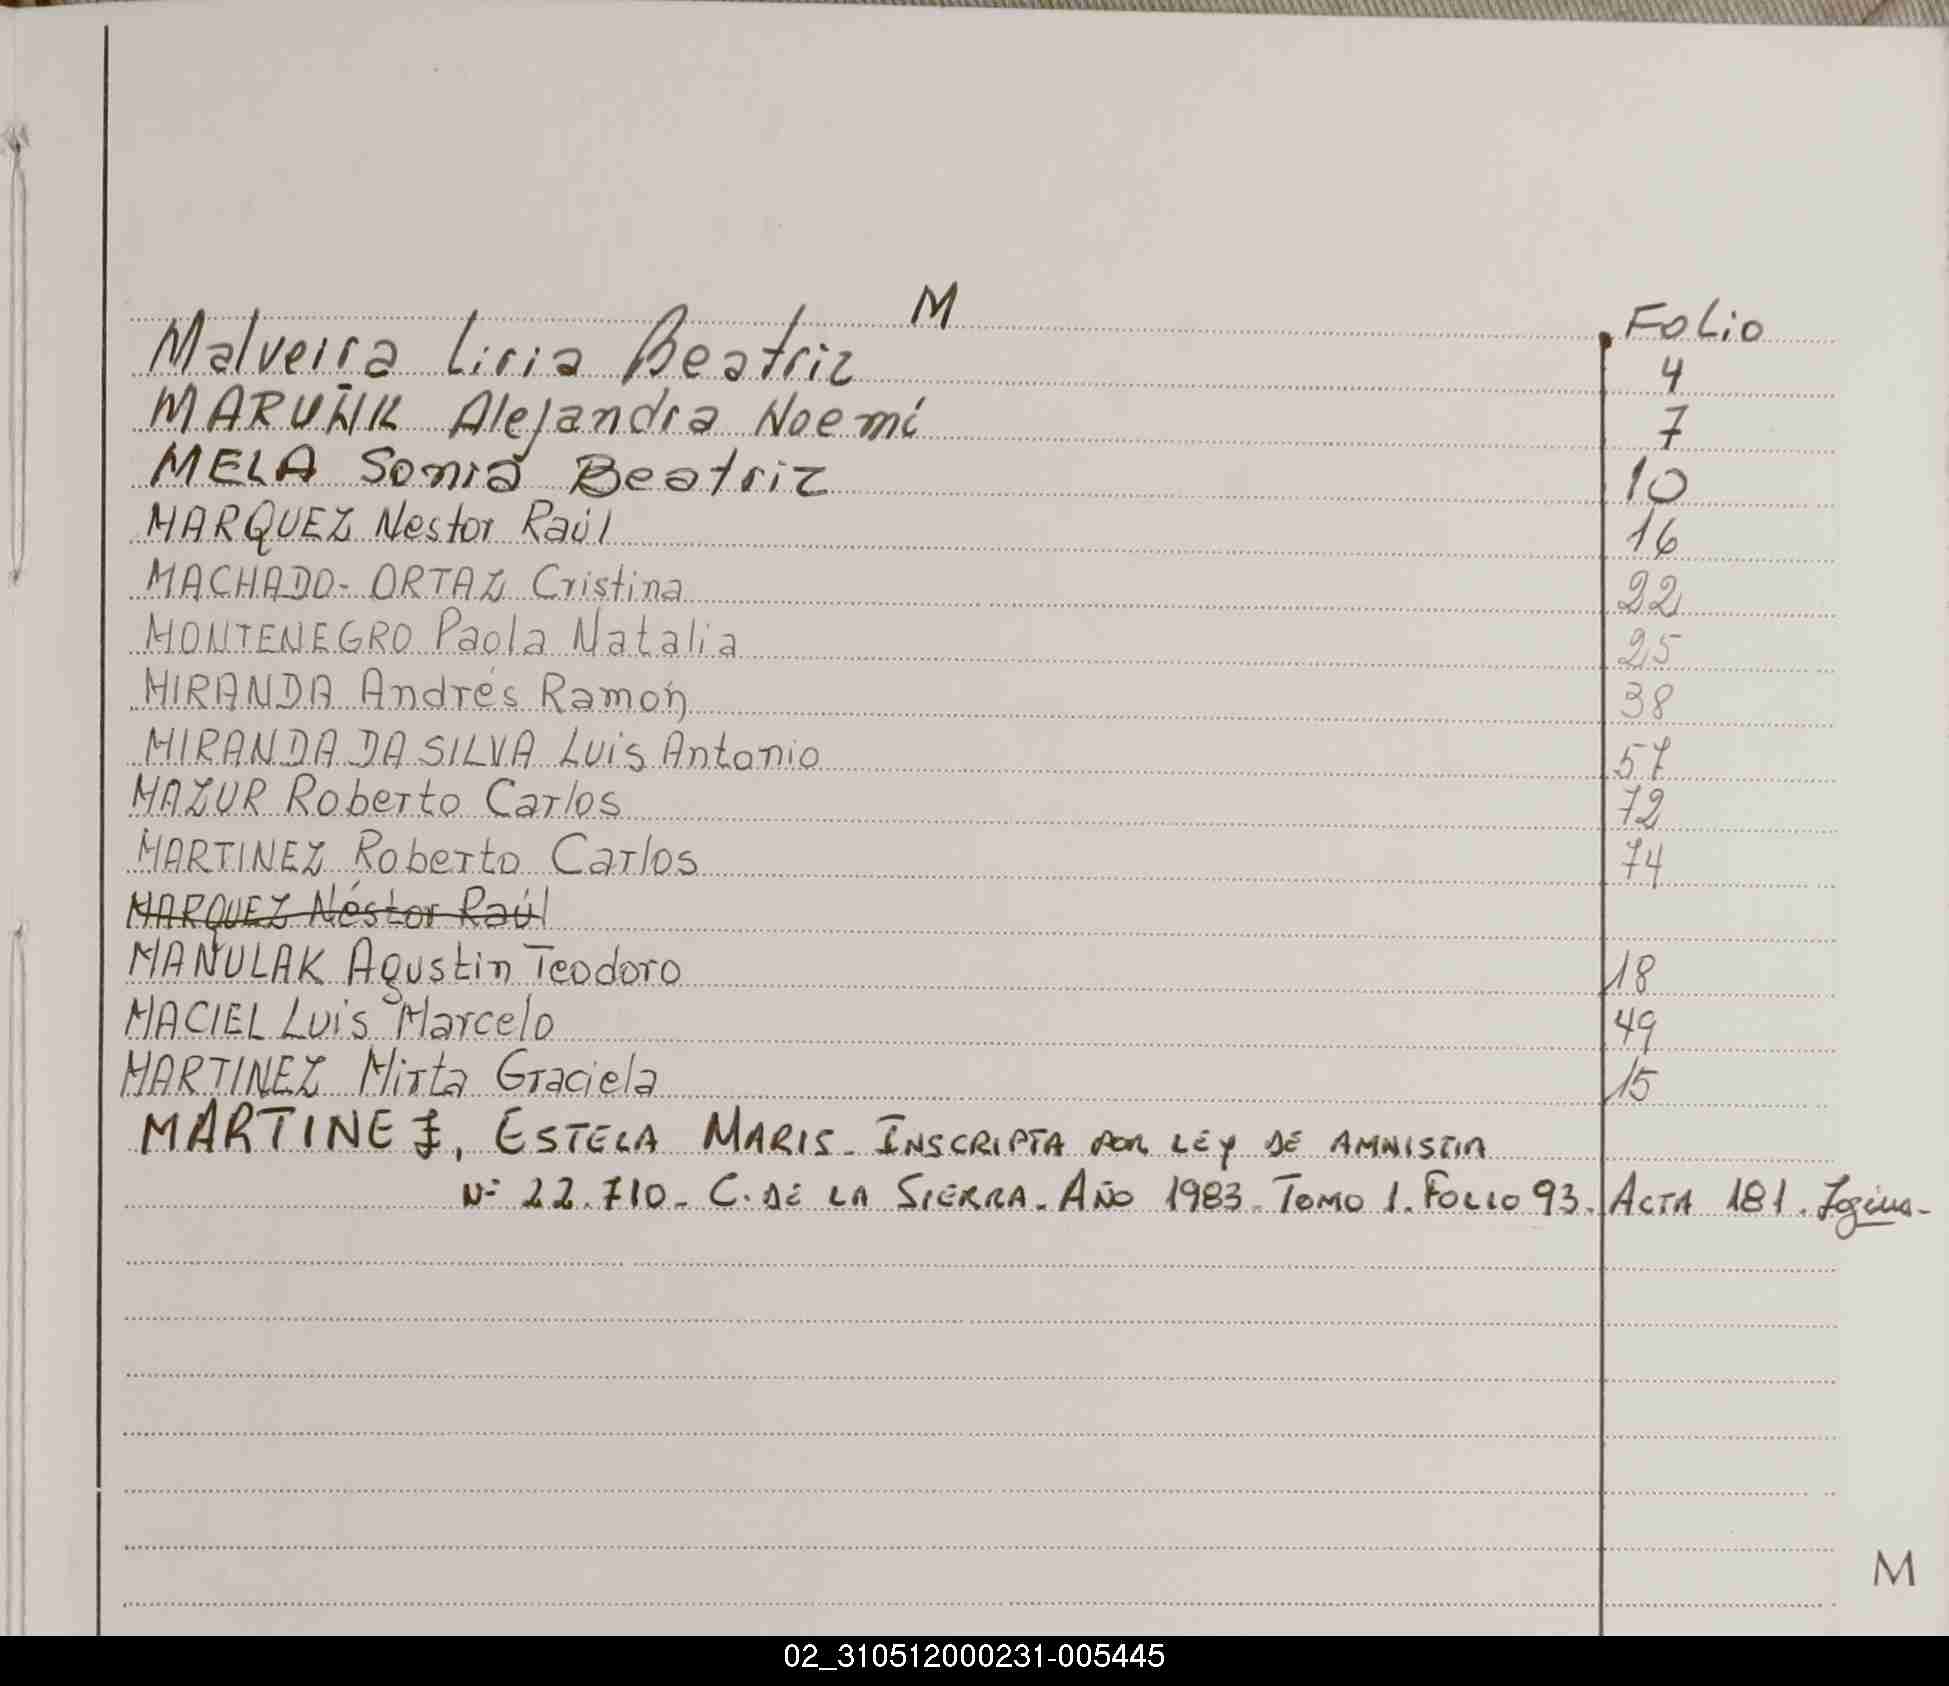 M Folio
Malveira Liria Beatriz 4
MARUÑK Alejandra Noemí 7
MELA Sonia Beatriz 10
MARQUEZ Nestor Raúl 16
MACHADO-ORTAZ Cristina 22
MONTENEGRO Paola Natalia 25
MIRANDA Andrés Ramón 38
MIRANDA DA SILVA Luis Antonio 57
MAZUR Roberto Carlos 72
MARTINEZ Roberto Carlos 74
MARQUEZ Néstor Raúl
MANULAK Agustin Teodoro 18
MACIEL Luis Marcelo 49
MARTINEZ Mirta Graciela 15
MARTINEZ, ESTELA MARIS. INSCRIPTA POR LEY DE AMNISTIA
Nº 22.710- C. DE LA SIERRA. AÑO 1983. TOMO 1. FOLIO 93. ACTA 181.
M
02_310512000231-005445